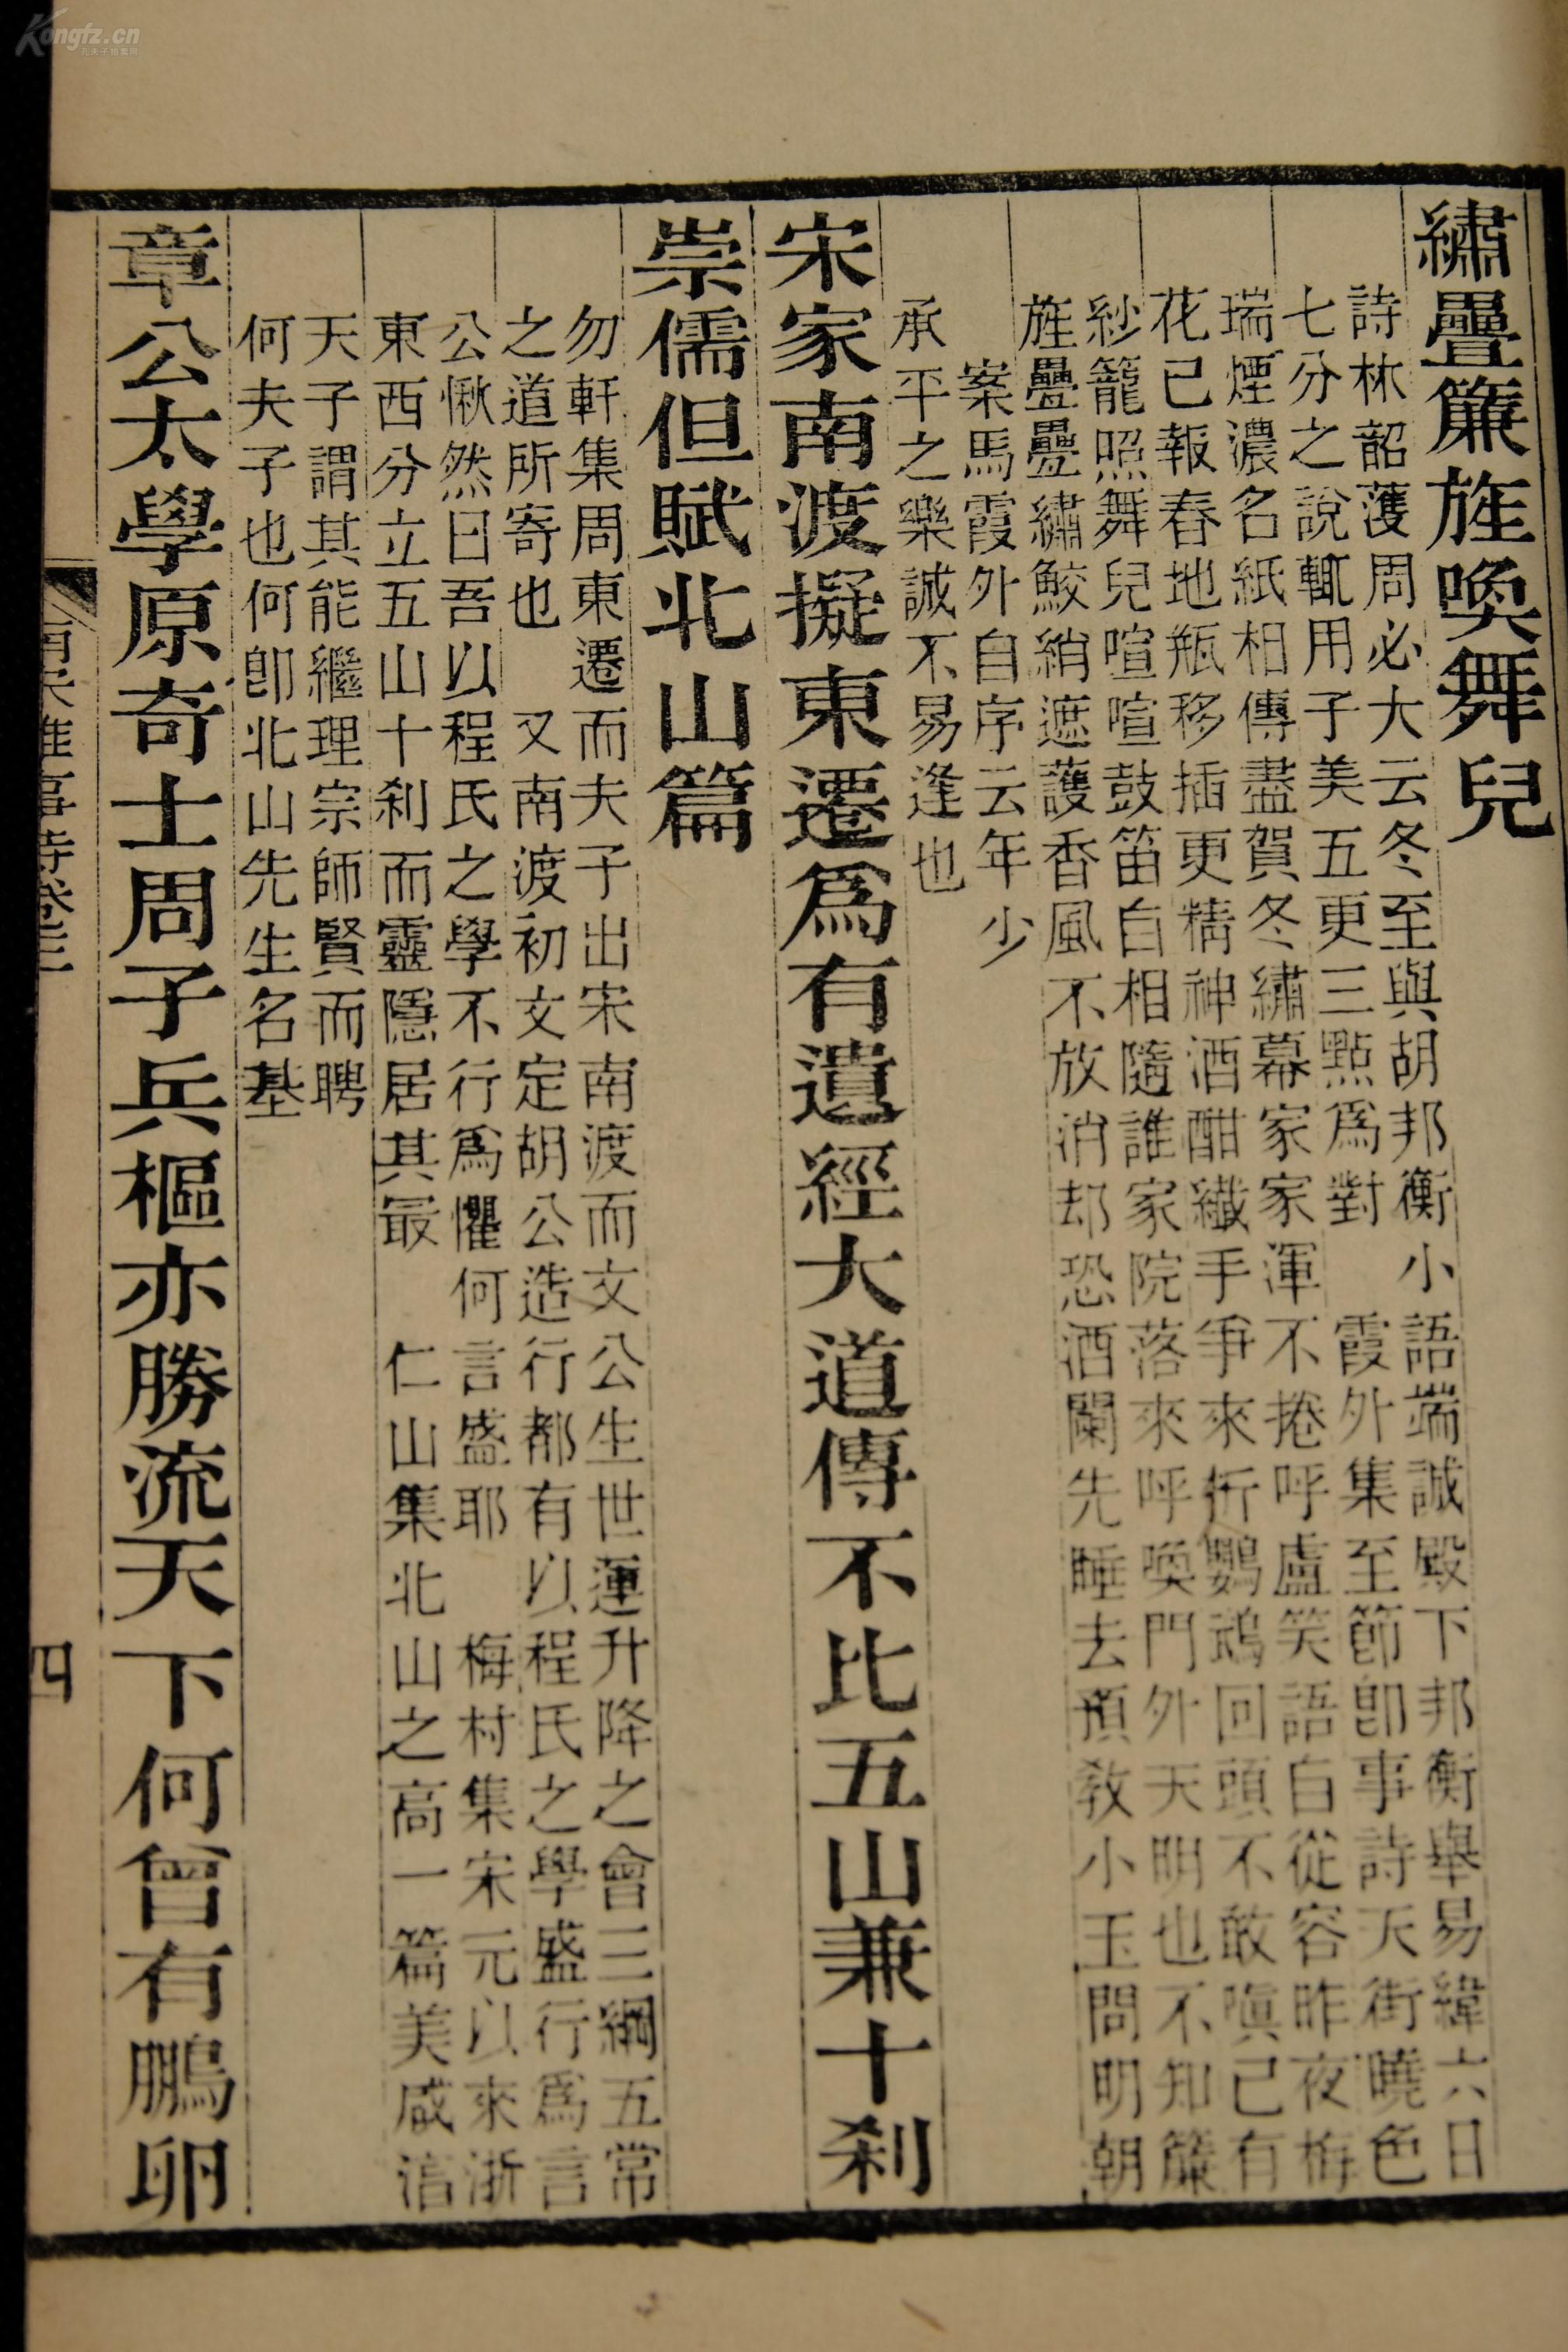 繡疊簾旌喚舞兒
詩林韶頀周必大云冬至與胡邦衡小語端誠殿下邦衡舉易緯六日
七分之說輒用子美五更三點爲對 霞外集至節卽事詩天街曉色
瑞煙濃名紙相傳盡賀冬繡幕家家渾不捲呼盧笑語自從容昨夜梅
花已報春地瓶移插更精神酒酣纖手爭來折鸚鵡回頭不敢嗔已有
紗籠照舞兒喧喧鼓笛自相隨誰家院落來呼喚門外天明也不知簾
旌疊疊繡鮫綃遮護香風不放消却恐酒闌先睡去預教小玉問明朝
案馬霞外自序云年少
承平之樂誠不易逢也
宋家南渡擬東遷爲有遺經大道傳不比五山兼十刹
崇儒但賦北山篇
勿軒集周東遷而夫子出宋南渡而文公生世運升降之會三綱五常
之道所寄也 又南渡初文定胡公造行都有以程氏之學盛行爲言
公愀然曰吾以程氏之學不行爲懼何言盛耶 梅村集宋元以來浙
東西分立五山十刹而靈隱居其最 仁山集北山之高一篇美咸湻
天子謂其能繼理宗師賢而聘
何夫子也何卽北山先生名基
章公太學原奇士周子兵樞亦勝流天下何曾有鵬卵
雜事詩卷三
四
Kongfz.cn